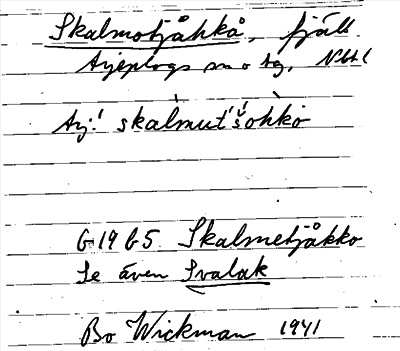 Skalmotjåhkå, fjäll
Arjeplogs sn o tg, Nbt l
Arj. skàlmut´š́ohkò
G 19 b5 Skalmetjåkko
Se även Svalak
Bo Wickman 1941